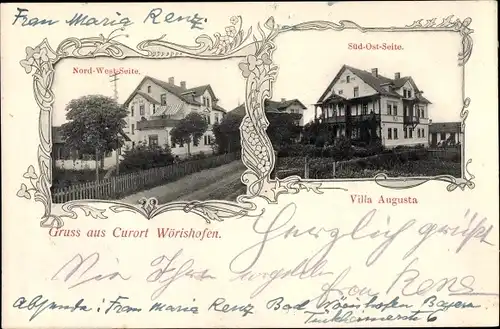 Frau Maria Renz.
Nord-West-Seite.
Süd-Ost-Seite.
Villa Augusta
Gruss aus Curort Wörishofen.
Herzlich grüßt
Wie Ihnen
Frau Renz
Absender: Frau Maria Renz Bad Wörishofen Bayern
Türkheimerstr 6